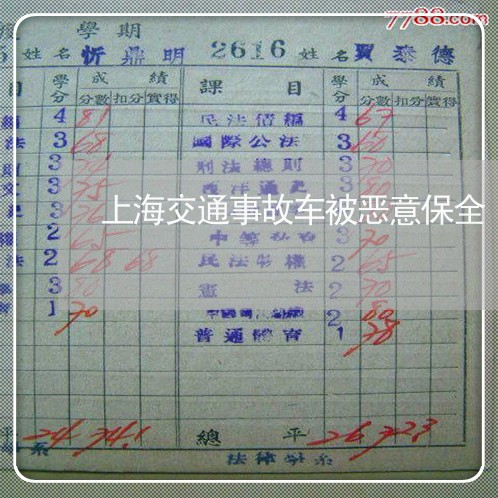 7788.com
學期
姓名 忻鼎明 2616 姓名 賈泰德
目 學分 成績 課目 學分 成績
分數 扣分 實得 分數 扣分 實得
4 81 民法債編 4 67
法 3 68 國際公法 3 60
3 刑法總則 3 70
3 75 西洋通史 3 80
上海交通事故车被恶意保全
2 65 3 70
法 2 68 68 民法物權 2 65
3 80 憲法 2 70
1 70 2 80
普通體育 1 78
平 24 74.1 總平 26 72.3
系 法律學系